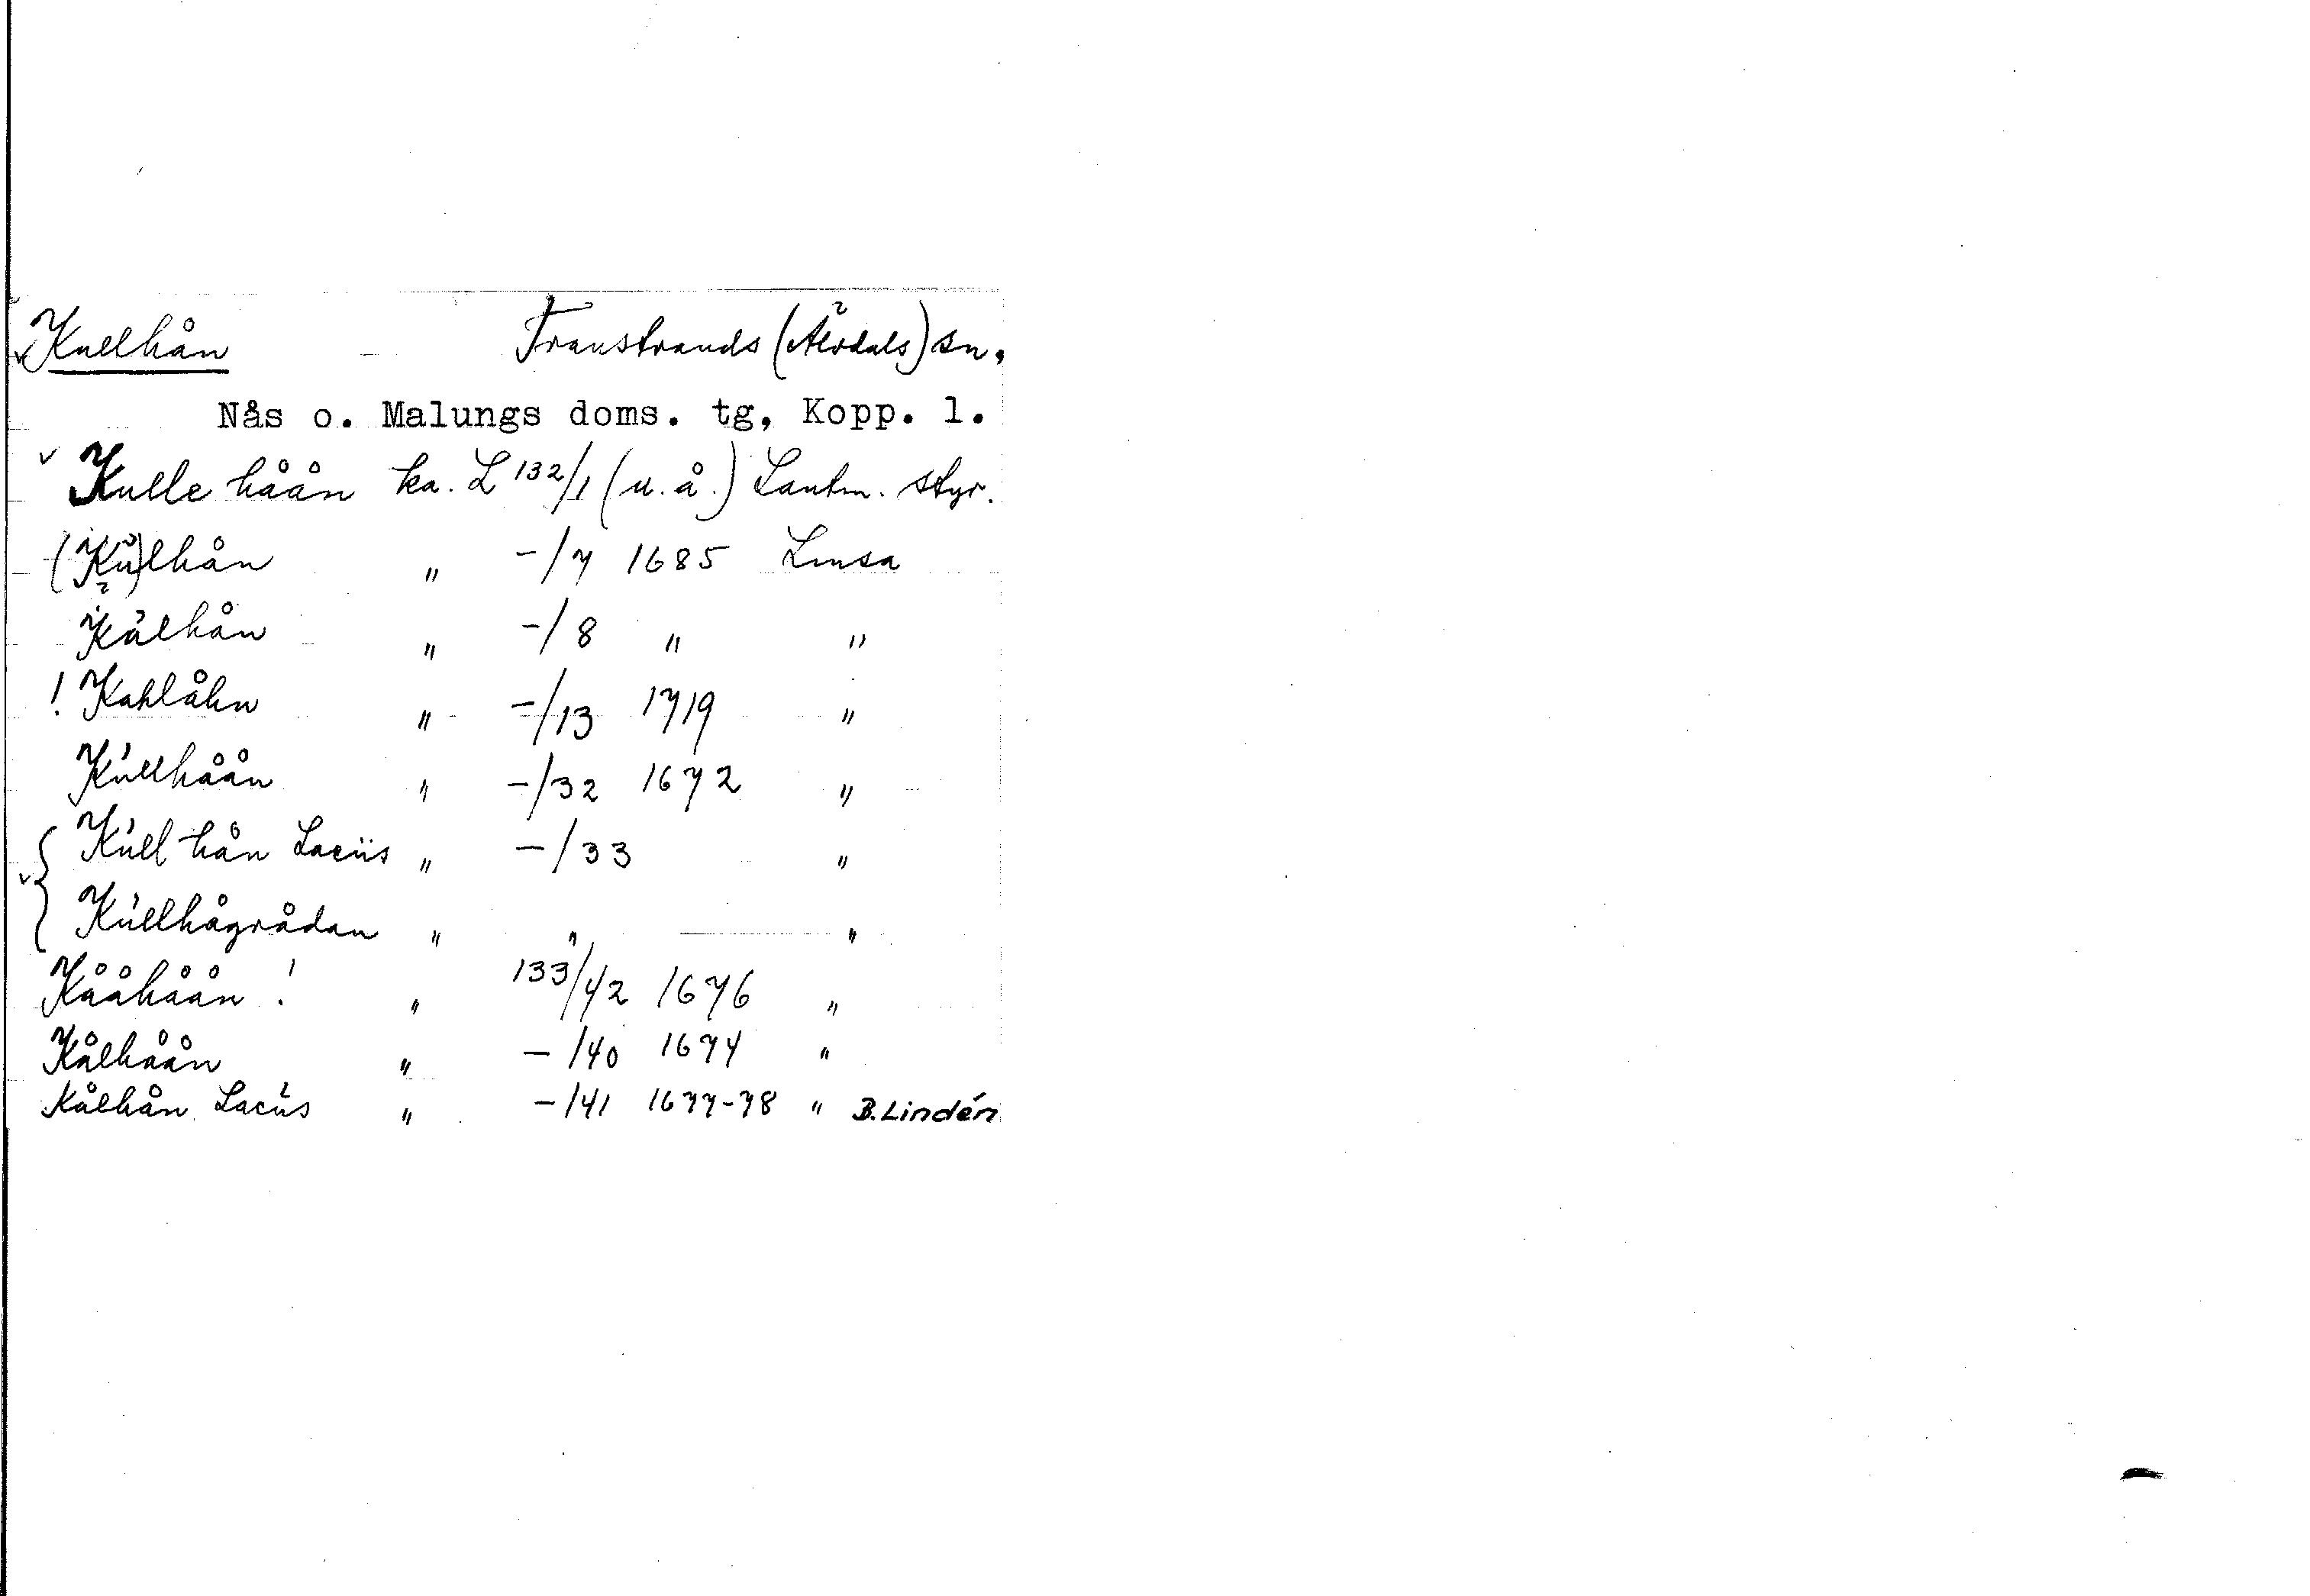 Kullhån Transtrands (Älvdals) sn.
Nås o. Malungs doms. tg, Kopp. l.
v Kulle håån ka. L 132/1 (u.å.) Lantm. styr.
(Kŭ)lhån " -/7 1685 Lmsa
Kålhån " -/8 " "
! Kahlåhn " -/13 1719 "
Kúllhåån " -/32 1672 "
Kúll hån Lacús " -/33 "
Kúllhågrådan " " "
Kååhåån ! " 133/42 1676 "
Kålhåån " -/40 1674 "
Kålhån Lacús " -/41 1677-78 " B. Lindén